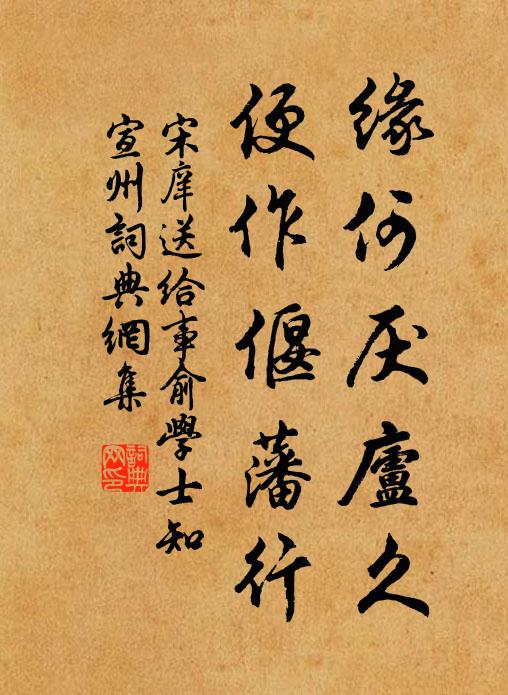 缘何厌廬久
便作偃藩行
宋庠送给事俞學士知
宣州詞典網集
詞典網印